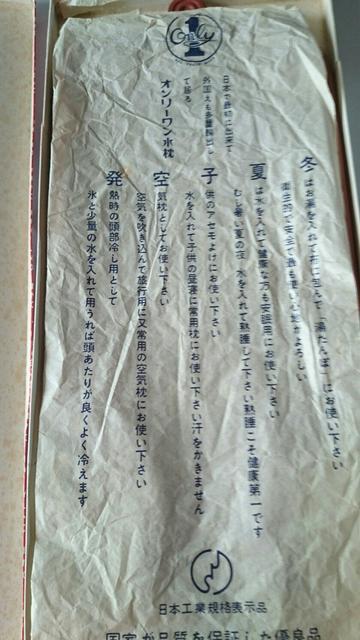 Only
1
日本で最初に出来て
外国えも多量輸出し
て居る
オンリーワン水枕
冬はお湯を入れて布に包んで「湯たんぽ」にお使い下さい
衛生的で安全で最も使い心地がよろしい
夏は水を入れて健康な方も安眠用にお使い下さい
むし暑い夏の夜 水を入れて熟睡して下さい熟睡こそ健康第一です
子供のアセモよけにお使い下さい
水を入れて子供の昼寝に常用枕にお使い下さい汗をかきません
空気枕としてお使い下さい
空気を吹き込んで旅行用に又常用の空気枕にお使い下さい
発熱時の頭部冷し用として
氷と少量の水を入れて用うれば頭あたりが良くよく冷えます
日本工業規格表示品
国家が品質を保証した優良品